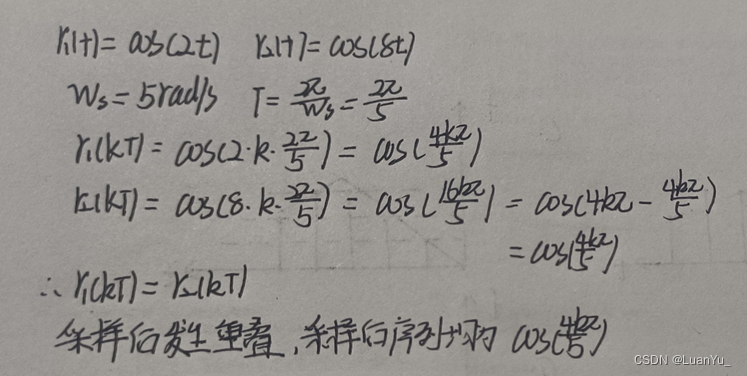 r₁(t) = cos(2t) r₂(t) = cos(8t)
Ws = 5rad/s T = 2π/Ws = 2π/5
r₁(kT) = cos(2·k·2π/5) = cos(4kπ/5)
r₂(kT) = cos(8·k·2π/5) = cos(16kπ/5) = cos(4kπ - 4kπ/5)
= cos(4kπ/5)
∴ r₁(kT) = r₂(kT)
采样后发生重叠,采样后序列均为 cos(4kπ/5)
CSDN @LuanYu_